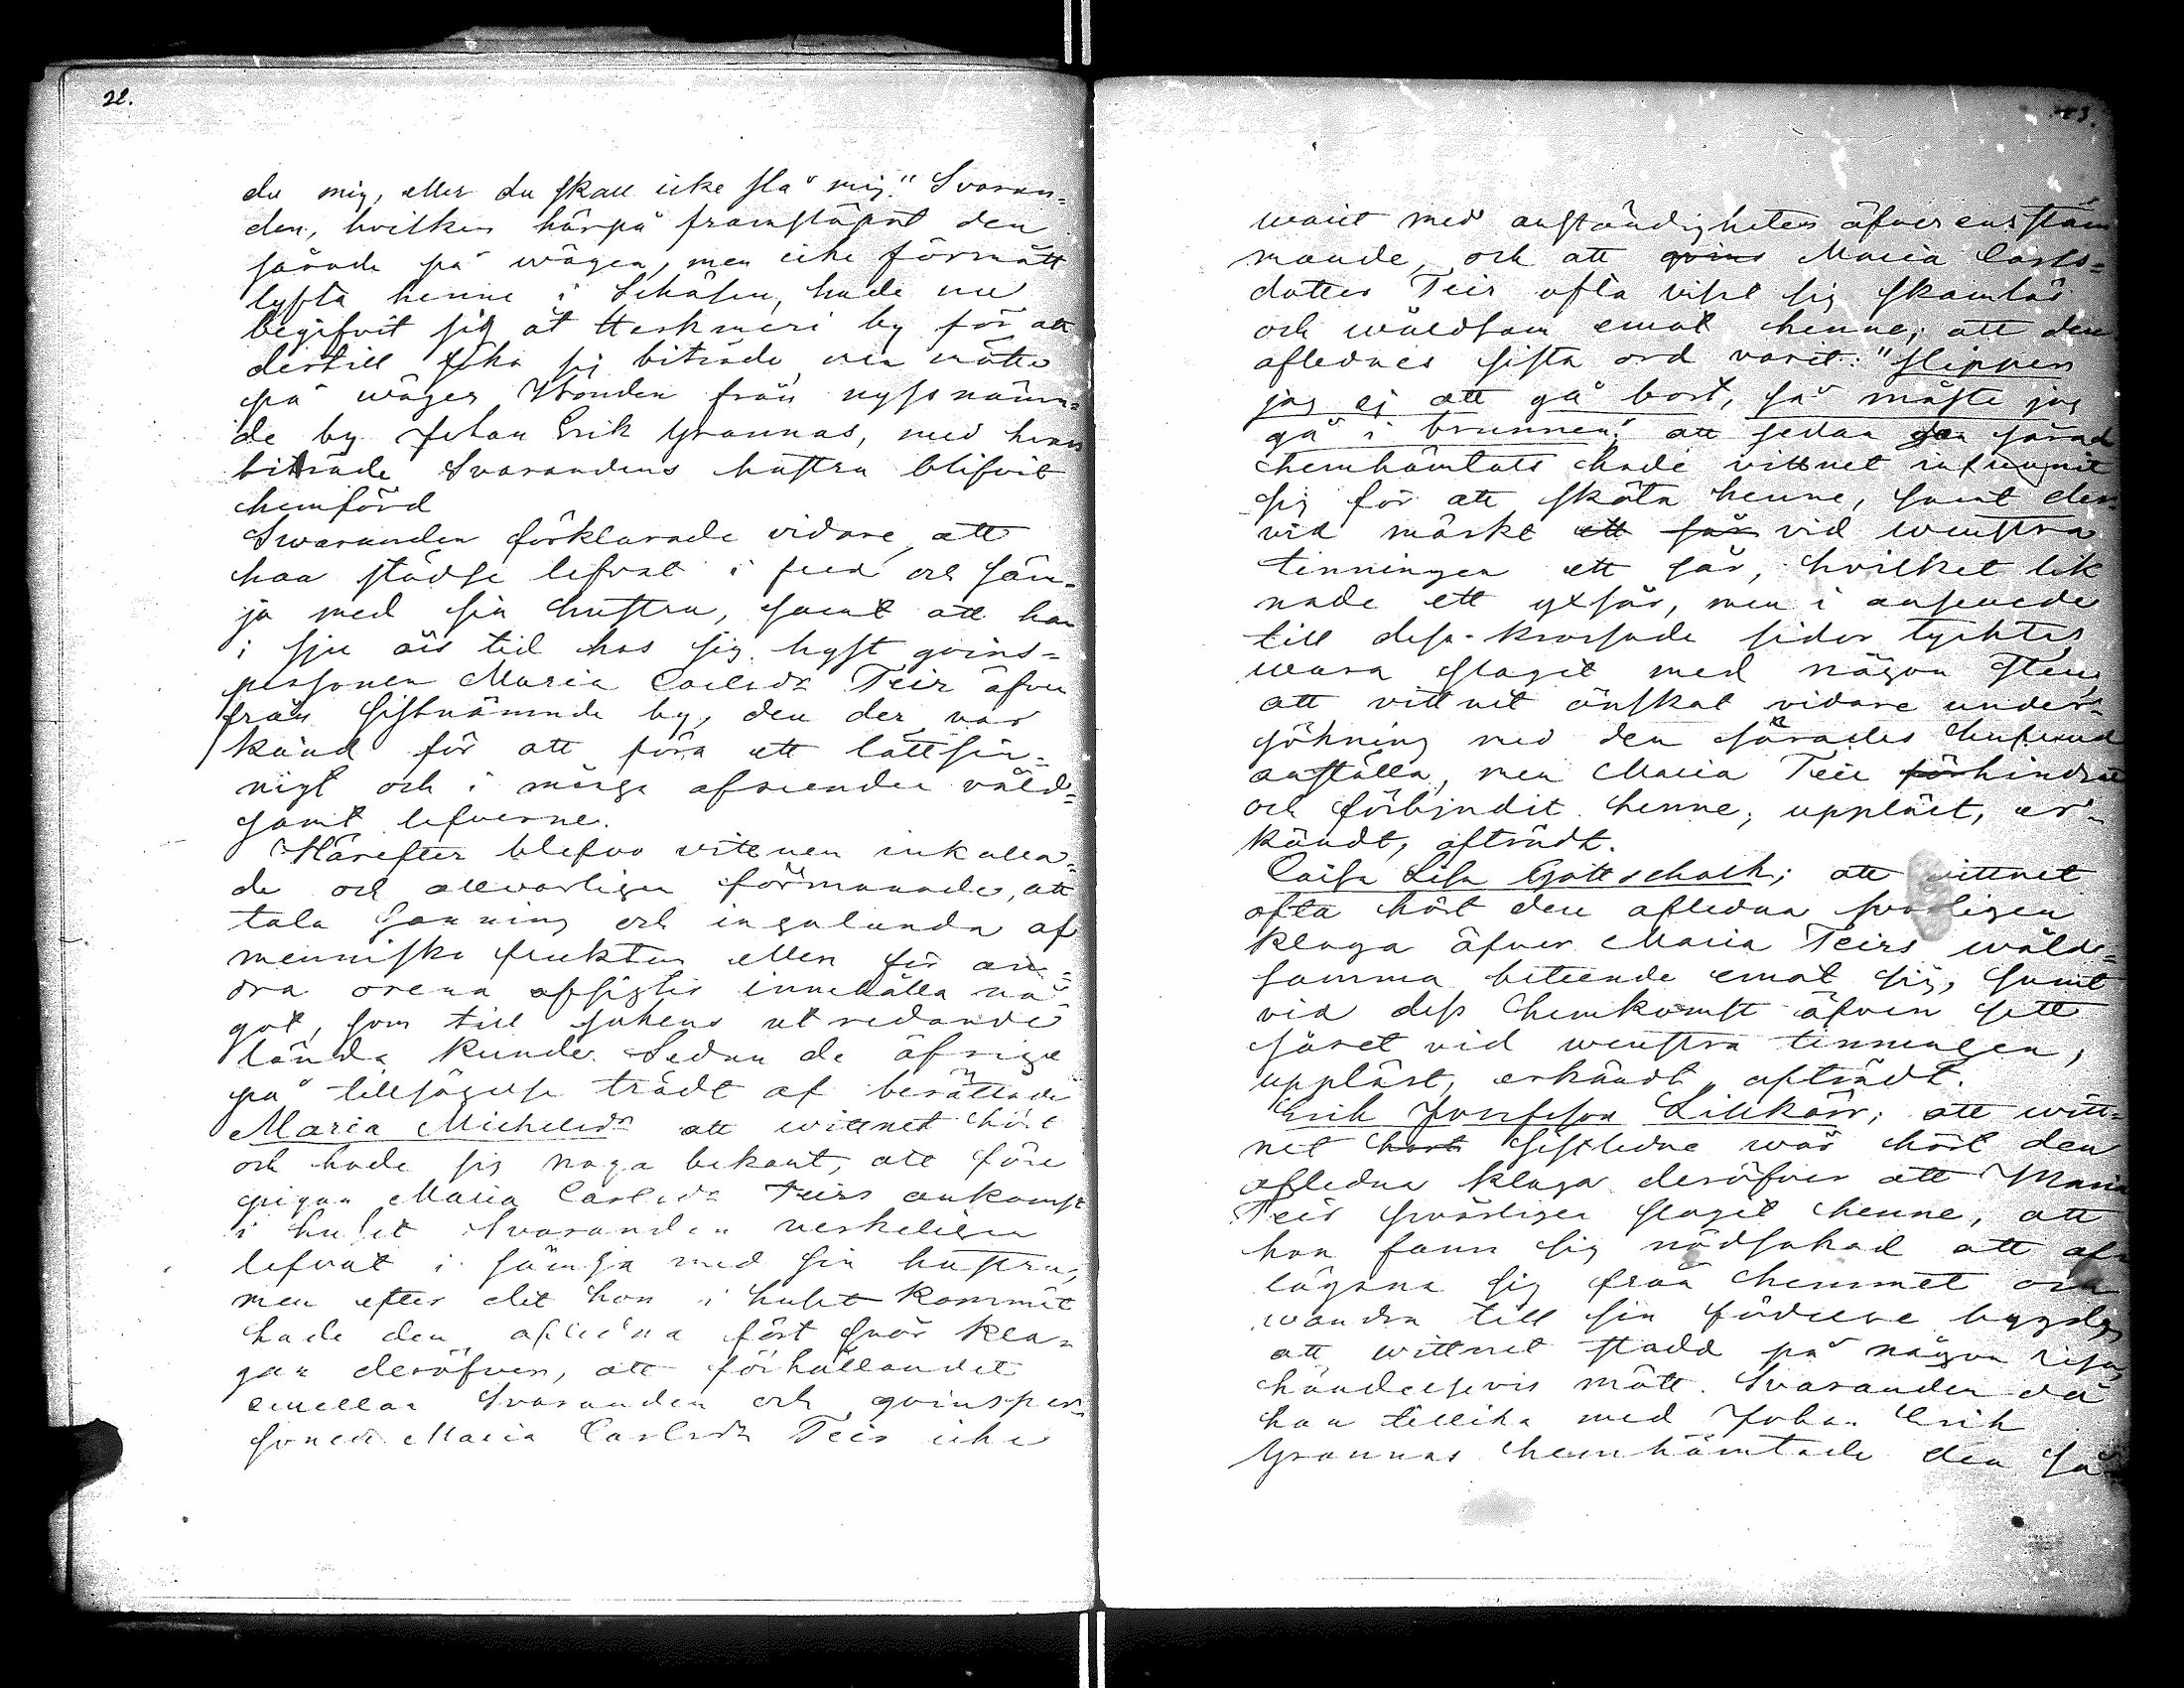 22.
du mig, eller du skall icke slå mig." Svaran=
den, hvilken härpå framsläpat den
sårade på wägen, men icke förmått
lyfta henne i Schäsen, hade nu
begifvit sig åt Heskmeri by för att
dertill söka sig biträde, men mötte
på wägen Bonden från nyssnämn=
de by Johan Erik Grannas, med hvars
biträde Svarandens hustru blifvit
hemförd
Swaranden förklarade vidare, att
han städse lefvat i fred och säm=
ja med sin hustru, samt att han
i sju års tid hos sig hyst qvins=
personen Maria Carlsdr Teir äfven
från sistnämnde by, den der var
känd för att föra ett lättsin=
nigt och i många afseenden våld=
samt lefverne.
Härefter blefvo vittnen inkalla=
de och allvarligen förmanade, att
tala sanning och ingalunda af
menniskofruktan eller för an=
dra orena afsigter innehålla nå=
got, som till sakens utredande
lända kunde. Sedan de öfrige
på tillsägelse trädt af berättade
Maria Michelsdr att wittnet hört
och hade sig noga bekant, att före
pigan Maria Carlsdr Teirs ankomst
i huset Svaranden verkeligen
lefvat i sämja med sin hustru,
men efter det hon i huset kommit
hade den aflidna fört svår kla=
gan deröfver, att förhållandet
emellan Svaranden och qvinsper=
sonen Maria Carlsdr Teir icke
23.
warit med anständigheten öfverensstäm
mande, och att qvins Maria Carls=
dotter Teir ofta vist sig skamlös
och wåldsam emot henne; att den
aflednes sista ord varit: "slipper
jag ej att gå bort, så måste jag
gå i brunnen"; att sedan den sårad
hemhämtats hade vittnet infunnit
sig för att sköta henne, samt der
vid märkt ett sår vid wenstra
tinningen ett sår, hvilket lik
nade ett yxsår, men i anseende
till dess krossade sidor tycktes
wara slaget med någon sten,
att vittnet önskat vidare under=
sökning med den sårades hufvud
anställa, men Maria Teir förhindrat
och förbjudit henne; uppläst, er=
kändt, afträdt.
Caisa Lisa Gottschalk; att vittnet
ofta hört den aflidna svårligen
klaga öfver Maria Teirs wåld=
samma beteende emot sig, samt
vid dess hemkomst äfven sett
såret vid wenstra tinningen;
uppläst, erkändt, afträdt.
Erik Josefsson Lillkärr; att witt=
net hört sistledne wår hört den
aflidna klaga deröfver att Maria
Teir svårligen slaget henne, att
hon fann sig nödsakad att af
lägsna sig från hemmet och
wandra till sin födelse bygd;
att wittnet stadd på någon resa,
händelsevis mött Svaranden då
han tillika med Johan Erik
Grannas hemhämtade den så=